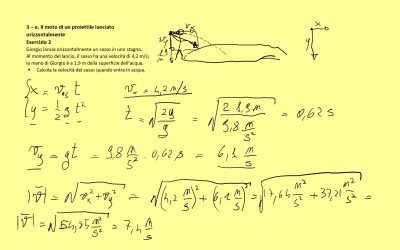 3 – e. Il moto di un proiettile lanciato
orizzontalmente
Esercizio 2
Giorgio lancia orizzontalmente un sasso in uno stagno.
Al momento del lancio, il sasso ha una velocità di 4,2 m/s;
la mano di Giorgio è a 1,9 m dalla superficie dell'acqua.
• Calcola la velocità del sasso quando entra in acqua.
x
y
x = v₀ₓ t
vₓ = 4,2 m/s
y = 1/2 g t²
t = √(2y/g) = √(2·1,9 m / 9,8 m/s²) = 0,62 s
v_y = g t = 9,8 m/s² · 0,62 s = 6,1 m/s
|v⃗| = √(vₓ² + v_y²) = √((4,2 m/s)² + (6,1 m/s)²) = √(17,64 m²/s² + 37,21 m²/s²) =
|v⃗| = √(54,85 m²/s²) = 7,4 m/s